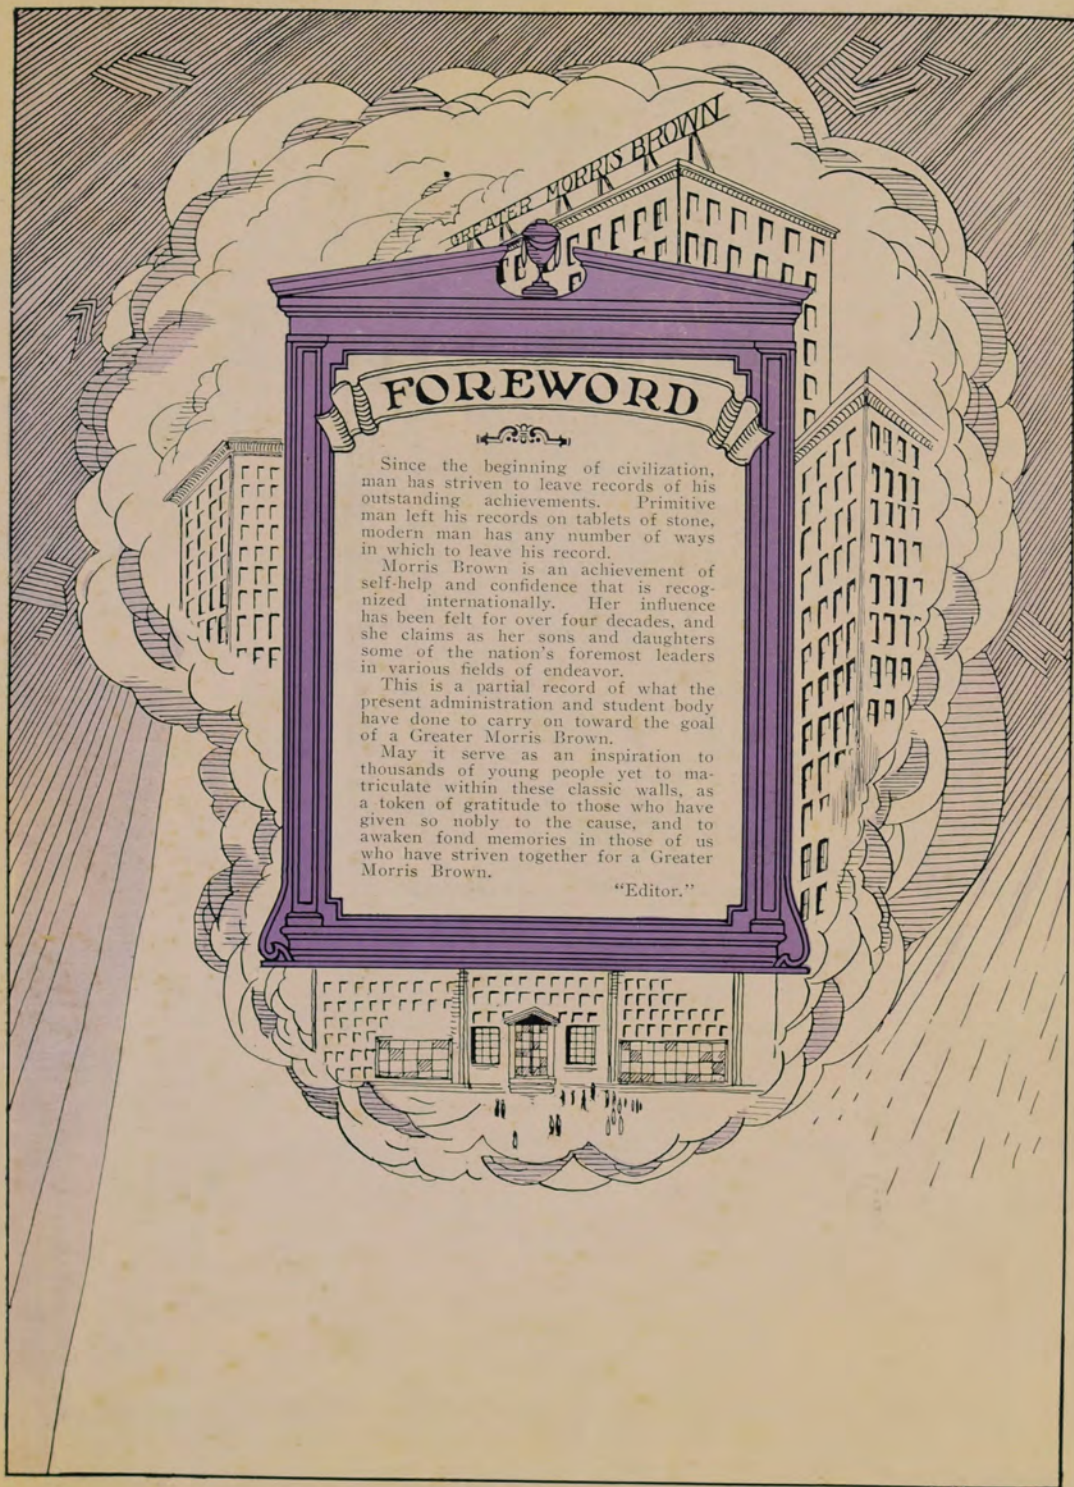 GREATER MORRIS BROWN
FOREWORD
Since the beginning of civilization,
man has striven to leave records of his
outstanding achievements. Primitive
man left his records on tablets of stone,
modern man has any number of ways
in which to leave his record.
Morris Brown is an achievement of
self-help and confidence that is recog-
nized internationally. Her influence
has been felt for over four decades, and
she claims as her sons and daughters
some of the nation's foremost leaders
in various fields of endeavor.
This is a partial record of what the
present administration and student body
have done to carry on toward the goal
of a Greater Morris Brown.
May it serve as an inspiration to
thousands of young people yet to ma-
triculate within these classic walls, as
a token of gratitude to those who have
given so nobly to the cause, and to
awaken fond memories in those of us
who have striven together for a Greater
Morris Brown.
"Editor."